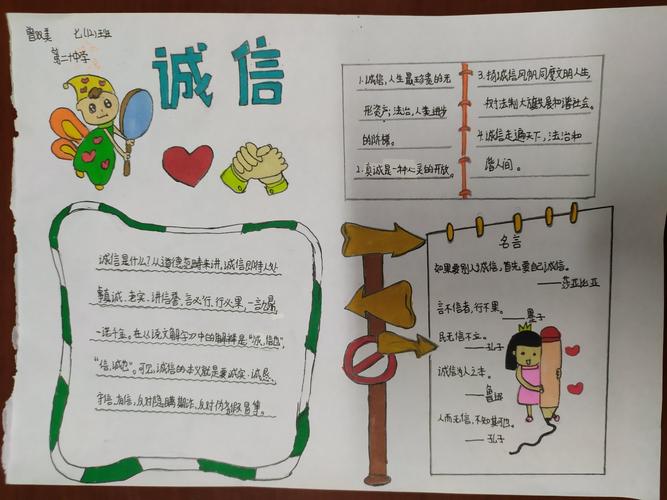 曾双美 七(12)班
第二十中学
诚信
1.诚信,人生最珍贵的无
形资产;法治,人类进步
的阶梯。
2.真诚是一种心灵的开放。
3.扬诚信风帆,同度文明人生,
树法制大旗,发展和谐社会。
4.诚信走遍天下,法治和
谐人间。
诚信是什么?从道德范畴来讲,诚信即待人处
事真诚、老实、讲信誉,言必行、行必果,一言九鼎,
一诺千金。在《说文解字》中的解释是"诚,信也",
"信,诚也"。可见,诚信的本义就是要诚实、诚恳、
守信、有信,反对隐瞒欺诈、反对伪劣假冒
名言
如果要别人诚信,首先要自己诚信。
——莎士比亚
言不信者,行不果。
——墨子
民无信不立。
——孔子
诚信为人之本。
——鲁迅
人而无信,不知其可也。
——孔子